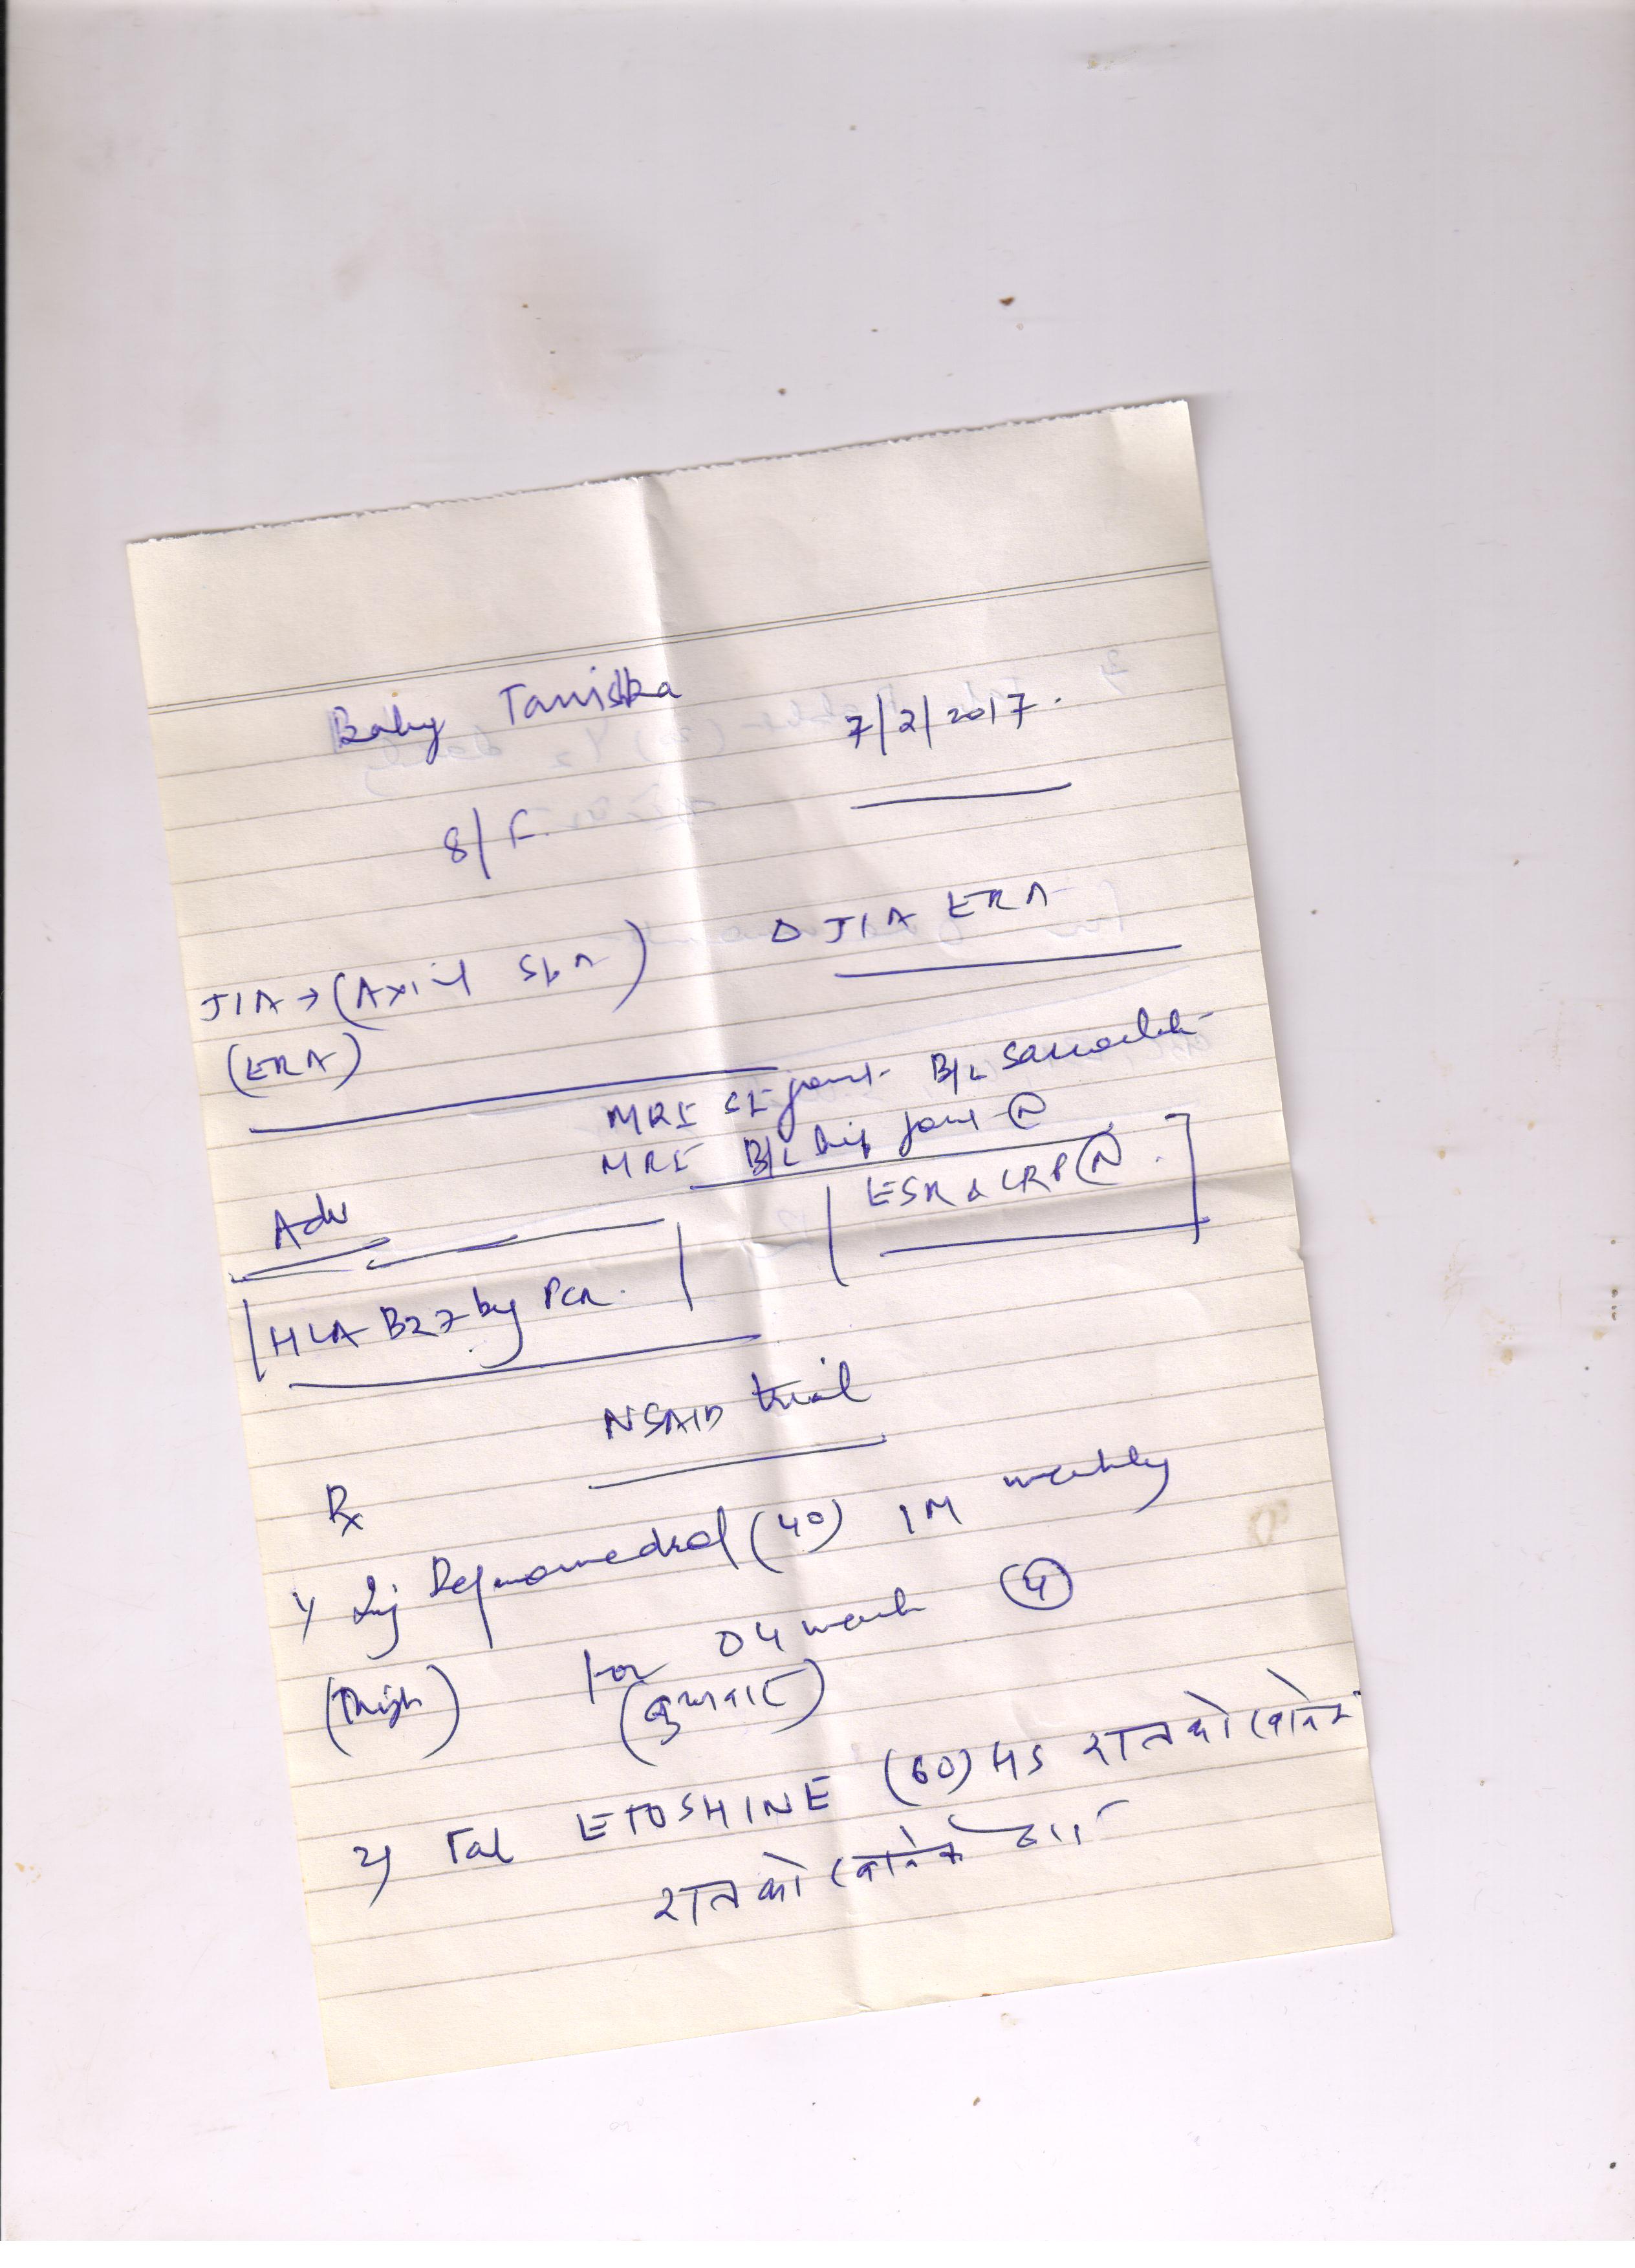 Baby Tanishka
7/2/2017.
8/F.
Δ JIA ERA
JIA → (Axial SpA)
(ERA)
MRI SI joint- B/L Sacroiliitis
MRI B/L hip joint Ⓝ
ESR & CRP Ⓝ.
Adv
HLA B27 by PCR.
NSAID trial
Rx
1) Inj Depomedrol (40) IM weekly
(Thigh) for 04 week ④
(बुधवार)
2) Tab ETOSHINE (60) HS रात को खाने
रात को खाने के